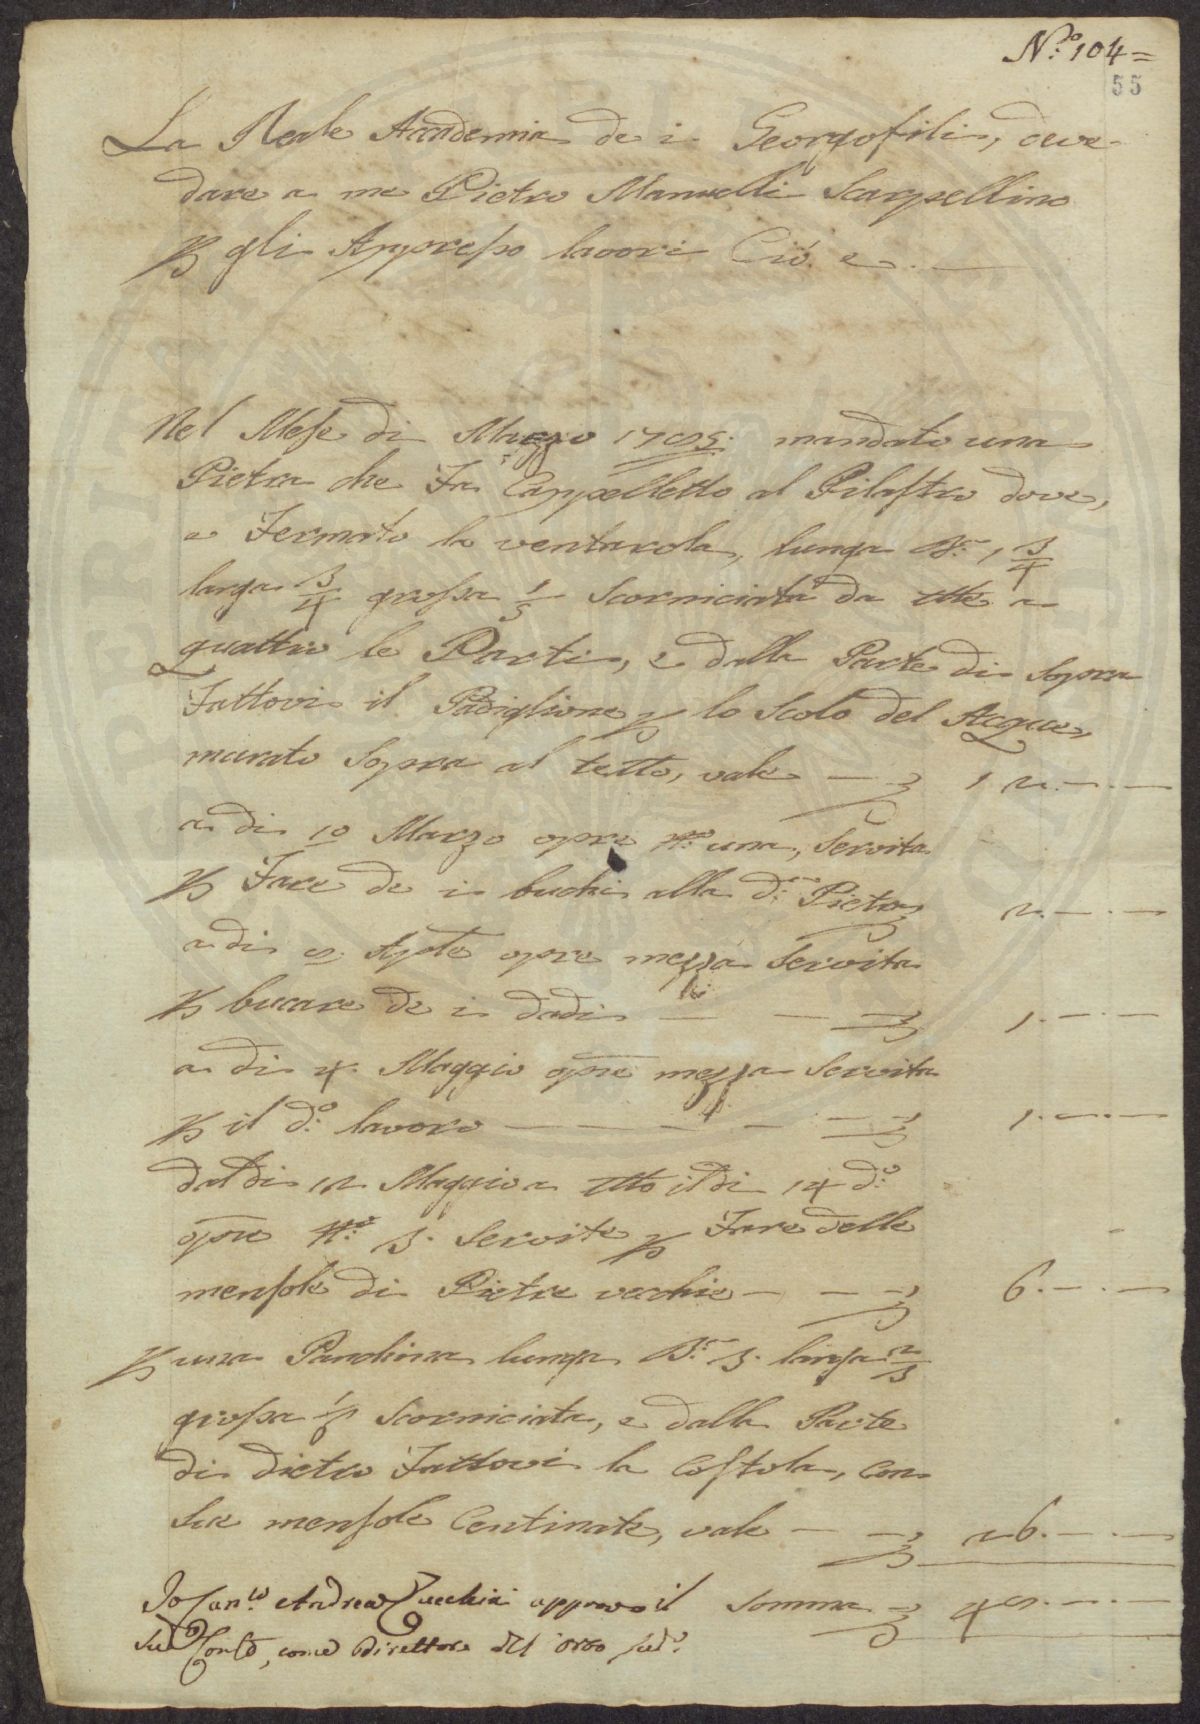 N.º 104=
55
La Reale Accademia de i Georgofili, deve
dare a me Pietro Manuelli Scarpellino
P gli Appresso lavori Cio e
Nel Mese di Marzo mandato una
Pietra che Fa Cappelletto al Pilastro dove,
e Fermato la ventarola, lunga B.a 1 3/4
larga 3/4 grossa 1/5 Scorniciata da tte a
quattro le Parti, e dalla Parte di Sopra
Fattovi il Padiglione p lo Scolo del Acque,
murato Sopra al tetto, vale — 12.—.—
a di 10 Marzo opre N.º una, Servita
P Fare de i buchi alla d.a Pietra 2.—.—
a di Aple opre mezza Servita
P bucare de i dadi — — 1.—.—
a di 4. Maggio opre mezza Servita
P il d.º lavoro — — — — 1.—.—
dal di 12 Maggio a tto il di 14 d.º
opre N.º 3. Servite p Fare delle
mensole di Pietre vechie — — 6.—.—
P una Panchina lunga B.a 3. larga 2/3
grossa Scorniciata, e dalla Parte
di dietro Fattovi la Costola, con
Sue mensole Centinate, vale — — 26.—.—
Somma
Io Andrea Zucchini approvo il
Sud.º Conto, come Direttore del orto Sud.º